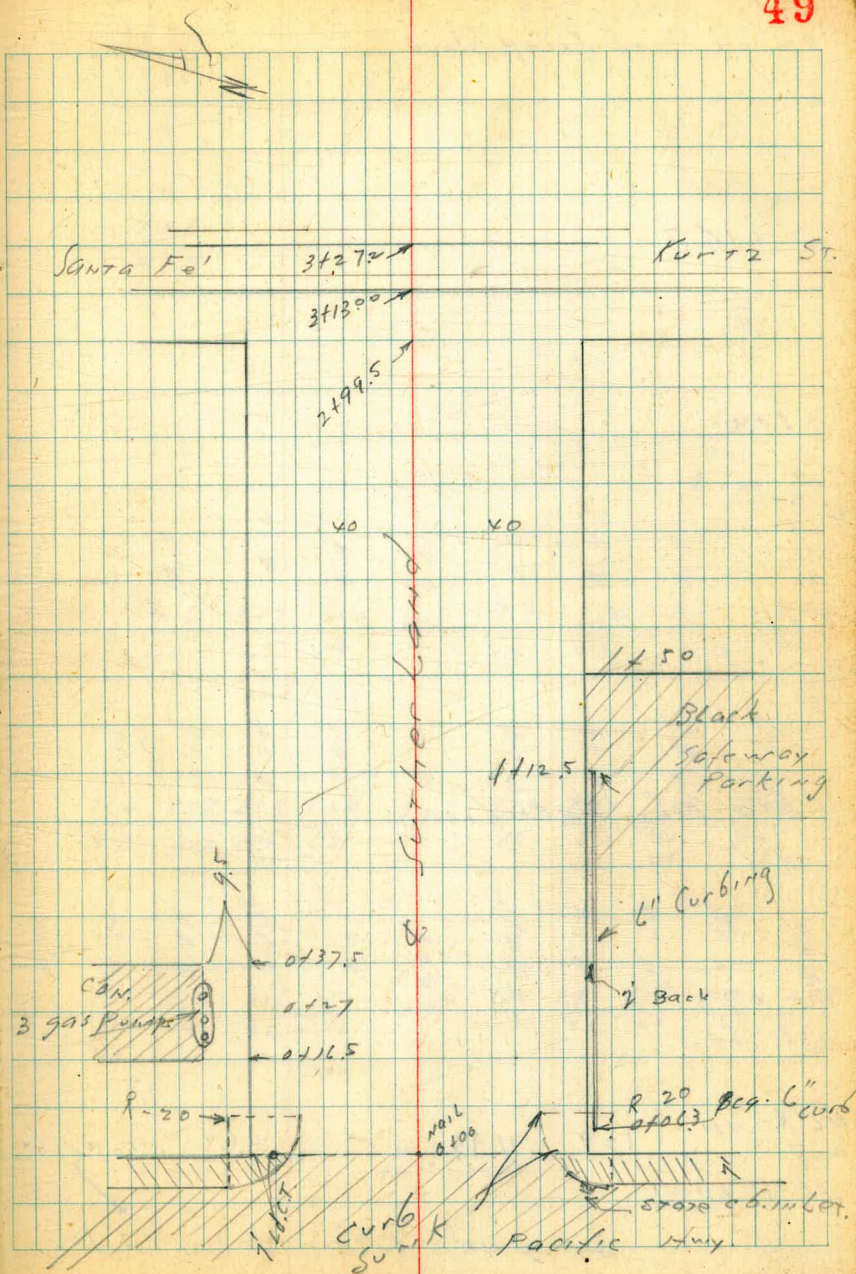 49
N
Santa Fe' 3+27.2 Kurtz St.
3+13.00
2+99.5
40 40
Sutherland
1+50
Black
Safeway
Parking
1+12.5
9.5
6" Curbing
0+37.5
Con.
3 gas Pumps
0+27
2' Back
0+16.5
R-20
R 20
0+06.3 Beg. 6" curb
Nail
0+00
Curb
Sunk
Pacific Hwy.